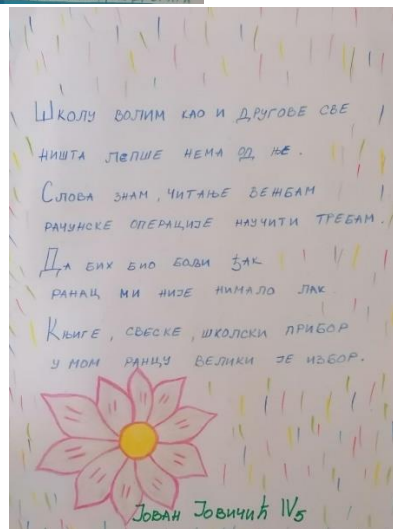 Школу волим као и другове све
ништа лепше нема од ње.
Слова знам, читање вежбам
рачунске операције научити требам.
Да бих био бољи ђак
ранац ми није нимало лак
Књиге, свеске, школски прибор
у мом ранцу велики је избор.
Јован Јовичић IV5